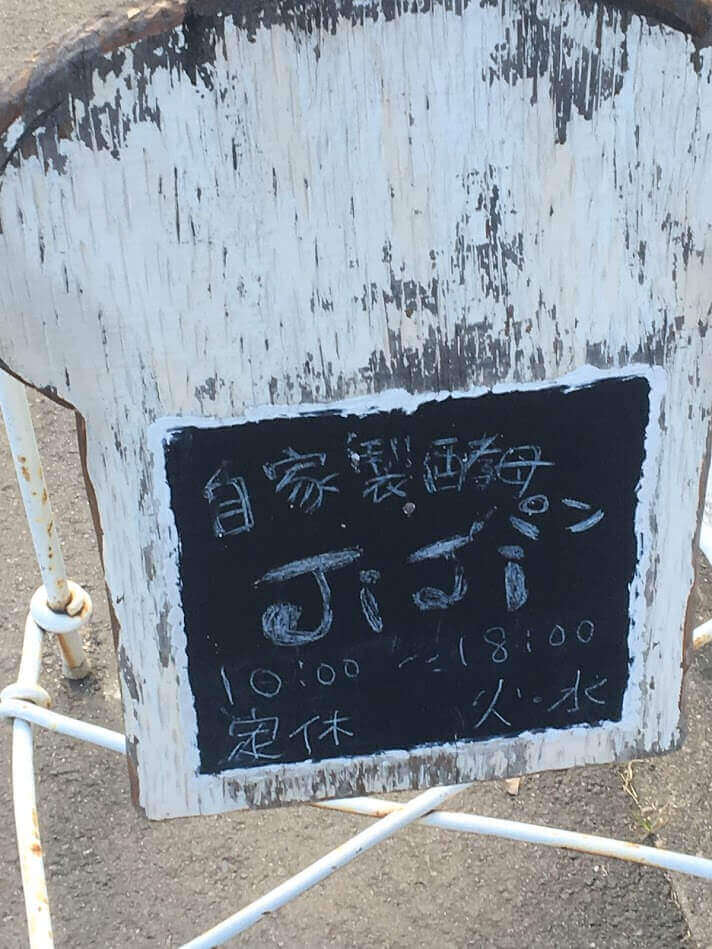 自家製酵母
パン
JiJi
10:00 〜 18:00
定休 火・水